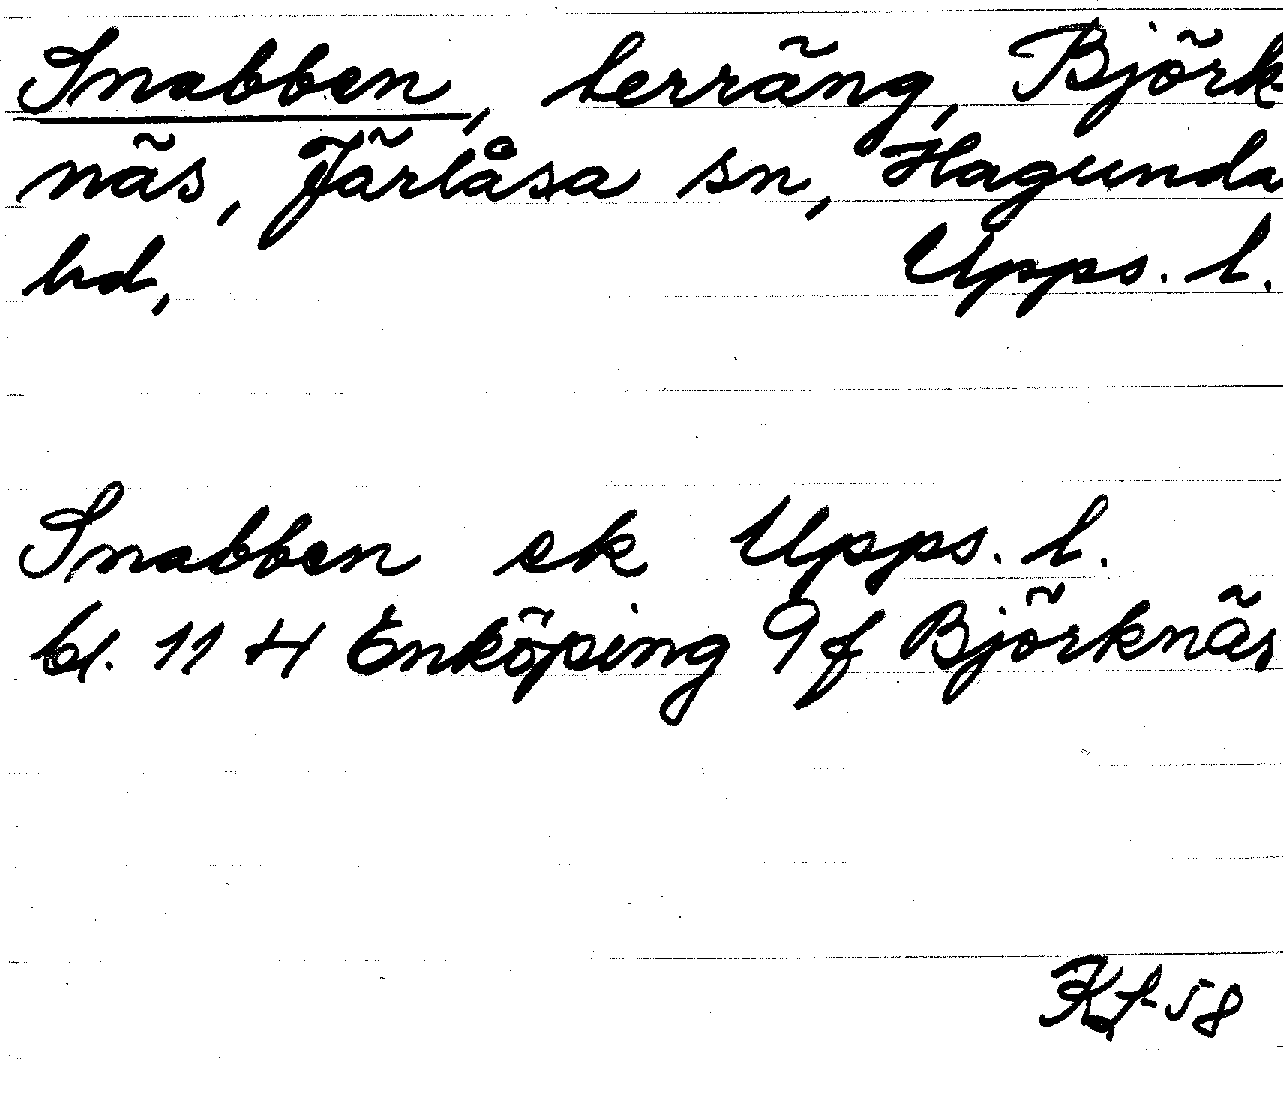 Snabben, terräng, Björk-
näs, Järlåsa sn, Hagunda
hd, Upps. l.
Snabben ek Upps. l.
bl. 11 H Enköping 9 f Björknäs